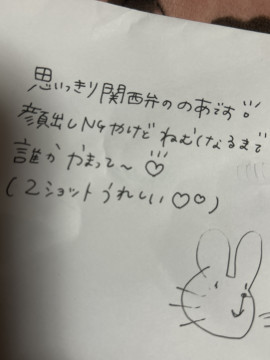 思いっきり関西弁ののあです!
顔出しNGやけど ねむくなるまで
誰か かまって〜♡
(2ショットうれしい♡♡)